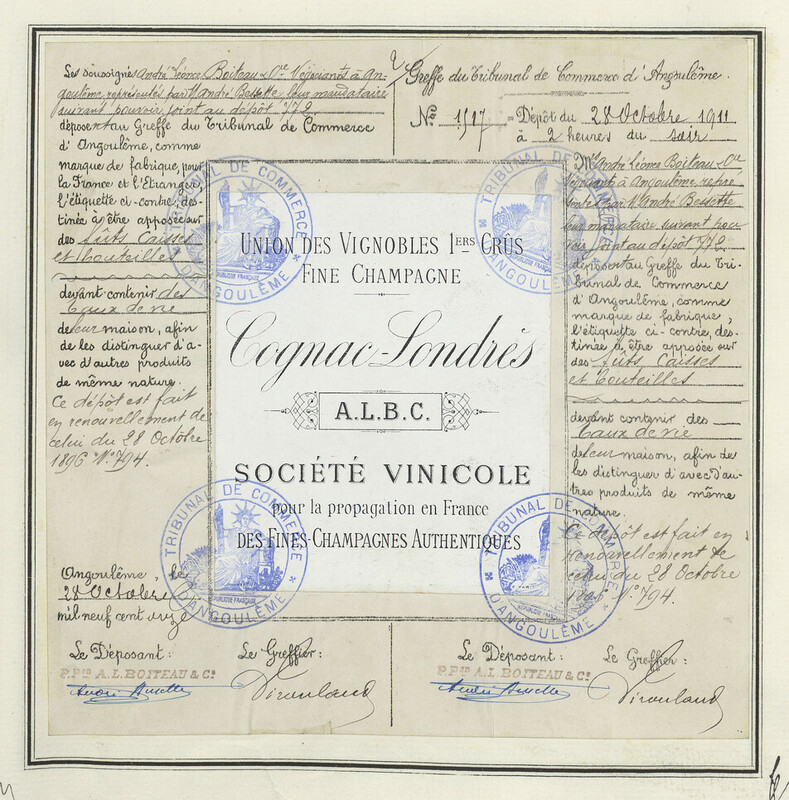 Les soussignés André Léonce Boiteau & Cie Négociants à An-
goulême, représentés par Mr André Bessette, leur mandataire
suivant pouvoir joint au dépôt 772
déposent au Greffe du Tribunal de Commerce
d'Angoulême, comme
marque de fabrique, pour
la France et l'Etranger,
l'étiquette ci-contre, des-
tinée à être apposée sur
des fûts, Caisses
et Bouteilles
devant contenir des
Eaux de vie
de leur maison, afin
de les distinguer d'a-
vec d'autres produits
de même nature.
Ce dépôt est fait
en renouvellement de
celui du 28 Octobre
1896 No 794.
Angoulême, le
28 Octobre
mil neuf cent onze
Le Déposant:
P. Pon A. L. BOITEAU & Co
Le Greffier:
UNION DES VIGNOBLES 1ERS CRÛS
FINE CHAMPAGNE
Cognac-Londrès
A.L.B.C.
SOCIÉTÉ VINICOLE
pour la propagation en France
DES FINES-CHAMPAGNES AUTHENTIQUES
TRIBUNAL DE COMMERCE
D'ANGOULÊME
RÉPUBLIQUE FRANÇAISE
TRIBUNAL DE COMMERCE
D'ANGOULÊME
TRIBUNAL DE COMMERCE
D'ANGOULÊME
RÉPUBLIQUE FRANÇAISE
TRIBUNAL DE COMMERCE
D'ANGOULÊME
Greffe du Tribunal de Commerce d'Angoulême.
No 1517 = Dépôt du 28 Octobre 1911
à 2 heures du soir
Mrs André Léonce Boiteau & Cie
Négociants à Angoulême, repré
sentés par Mr André Bessette
leur mandataire suivant pou
voir joint au dépôt 772
déposent au Greffe du Tri-
bunal de Commerce
d'Angoulême, comme
marque de fabrique,
l'étiquette ci-contre, des-
tinée à être apposée sur
des fûts, Caisses
et Bouteilles
devant contenir des
Eaux de vie
de leur maison, afin de
les distinguer d'avec d'au-
tres produits de même
nature.
Ce dépôt est fait en
renouvellement de
celui du 28 Octobre
1896 No 794.
Le Déposant:
P. Pon A. L. BOITEAU & Co
Le Greffier: